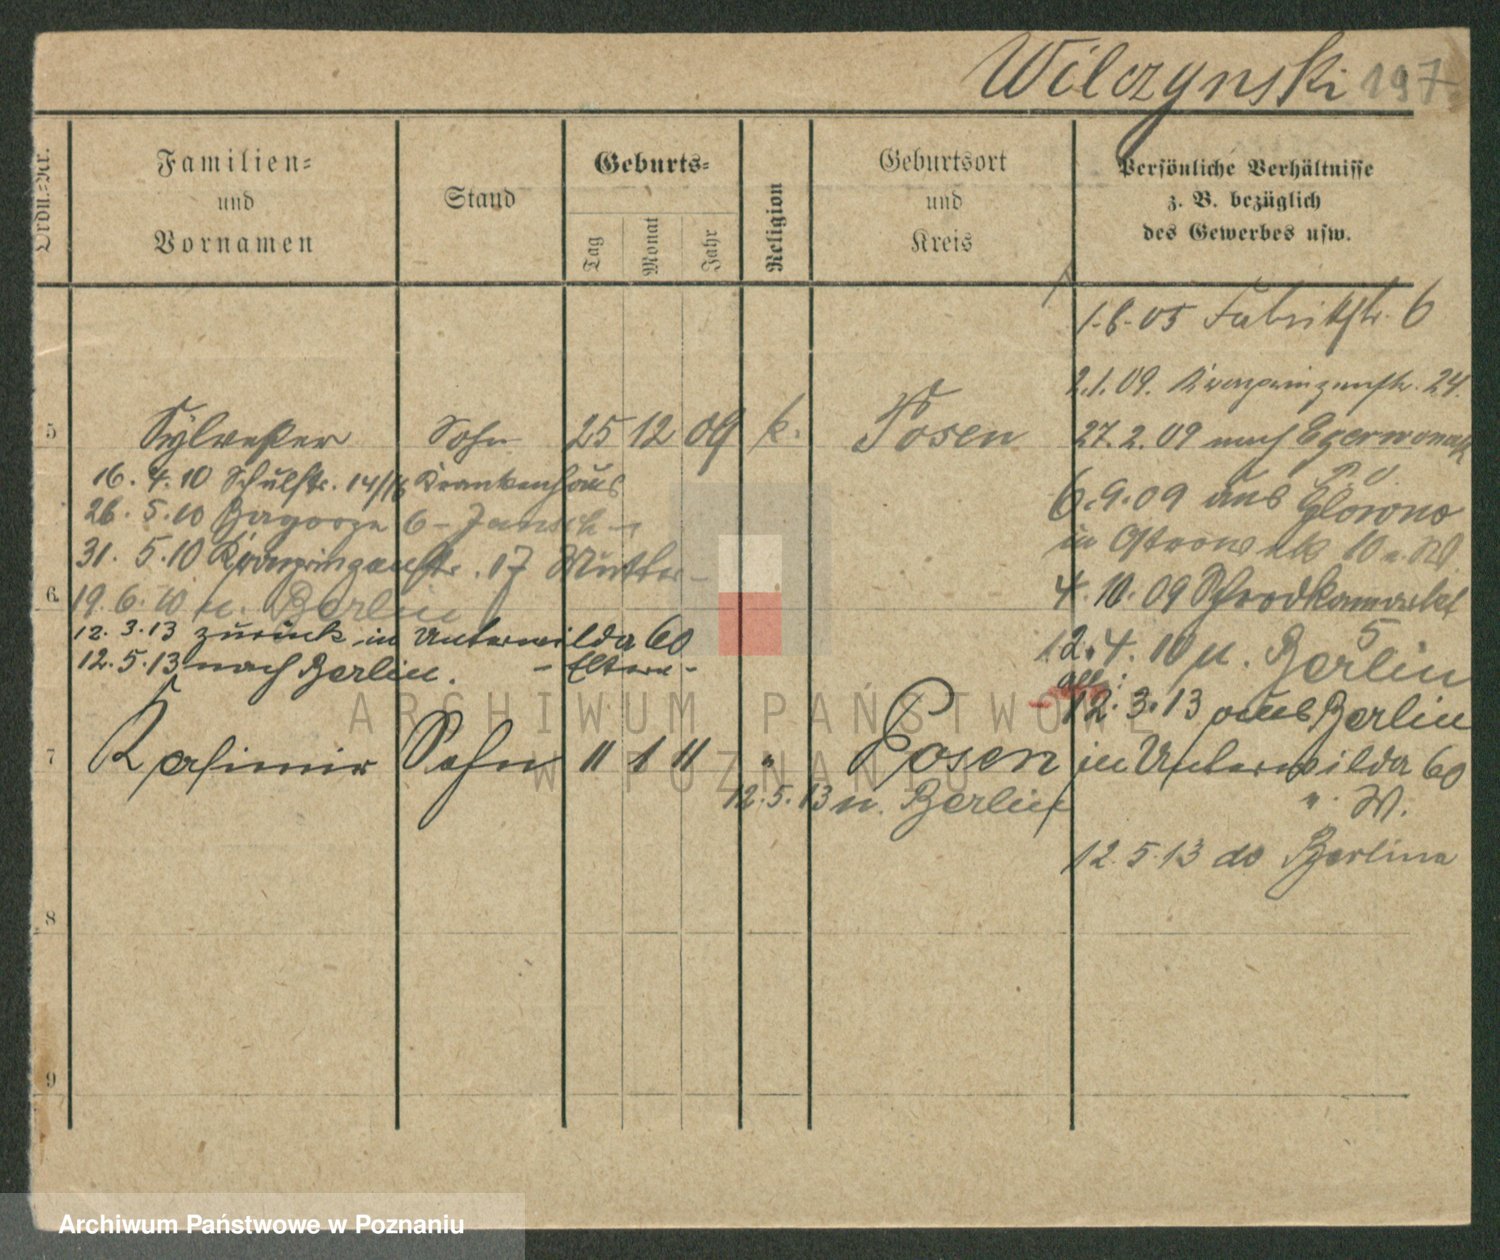 Wilczynski 197
Ordn.=Nr.
Familien=
und
Vornamen
Stand
Geburts=
Tag
Monat
Jahr
Religion
Geburtsort
und
Kreis
Persönliche Verhältnisse
z. B. bezüglich
des Gewerbes usw.
1.6.05 Fabrikstr. 6
2.1.09. Kronprinzenstr. 24.
5 Sylvester Sohn 25 12 09 k. Posen
27.2.09 nach
16. 4. 10 Schulstr. 14/ Krankenhaus
6.9.09 aus Glowno
26. 5. 10 6
in
31. 5. 10 Kronprinzenstr. 17 Mutter
4. 10. 09 Schrodkamarkt
5
6.
19. 6. 10 n. Berlin
12. 3. 13 zurück in Unterwilda 60
12. 4. 10 n. Berlin
12. 5. 13 nach Berlin. - Eltern -
12. 3. 13 aus Berlin
7 Kasimir Sohn 11 1 11 " Posen
in Unterwilda 60
12. 5. 13 n. Berlin
" W.
12. 5. 13 do Berlina
8
9
ARCHIWUM PAŃSTWOWE
W POZNANIU
Archiwum Państwowe w Poznaniu